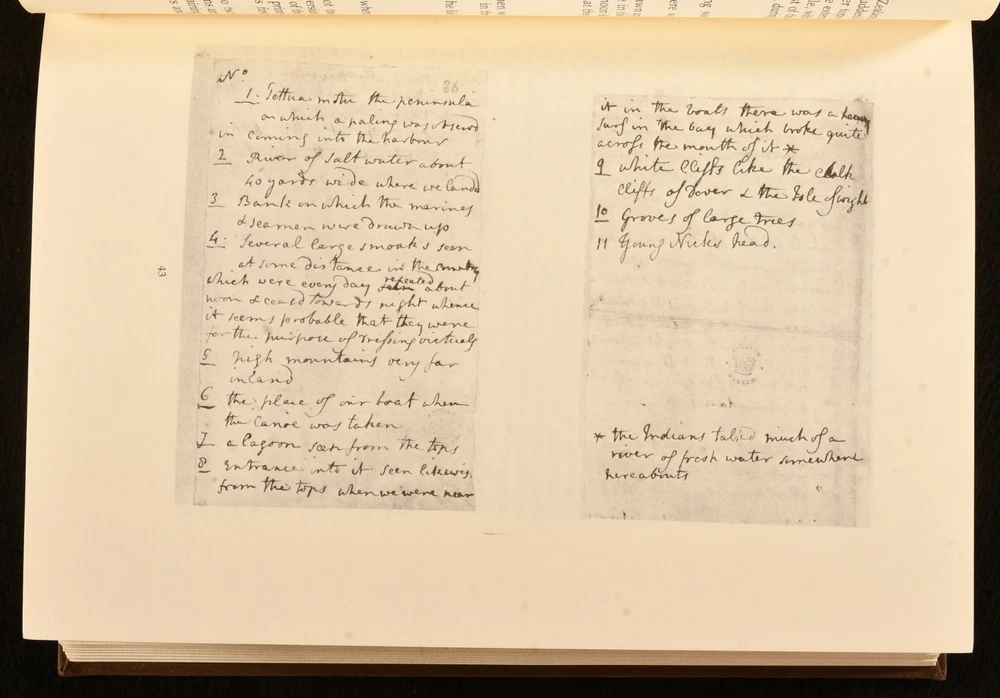 No
36
1. Tettua motu the peninsula
on which a paling was observd
in coming into the harbour
2 River of Salt water about
40 yards wide where we landd
3 Bank on which the marines
& seamen were drawn up
4. Several large smoaks seen
at some distance in the country
which were every day repeated about
noon & ceasd towards night whence
it seems probable that they were
for the purpose of dressing victuals
5 high mountains very far
inland
6 the place of our boat when
the Canoe was taken
7 a lagoon seen from the tops
8 Entrance into it seen likewise
from the tops when we were near
it in the boats there was a heavy
surf in the bay which broke quite
across the mouth of it *
9 white Cliffs like the chalk
cliffs of Dover & the Isle of wight
10 Groves of large trees
11 Young Nicks head.
* the Indians talked much of a
river of fresh water somewhere
hereabouts
43